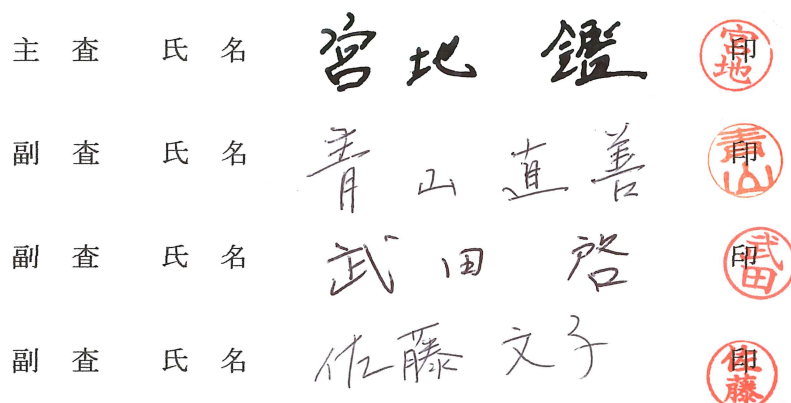 主査 氏名 宮地 鑑 印 宮地
副査 氏名 青山 直善 印 青山
副査 氏名 武田 啓 印 武田
副査 氏名 佐藤 文子 印 佐藤